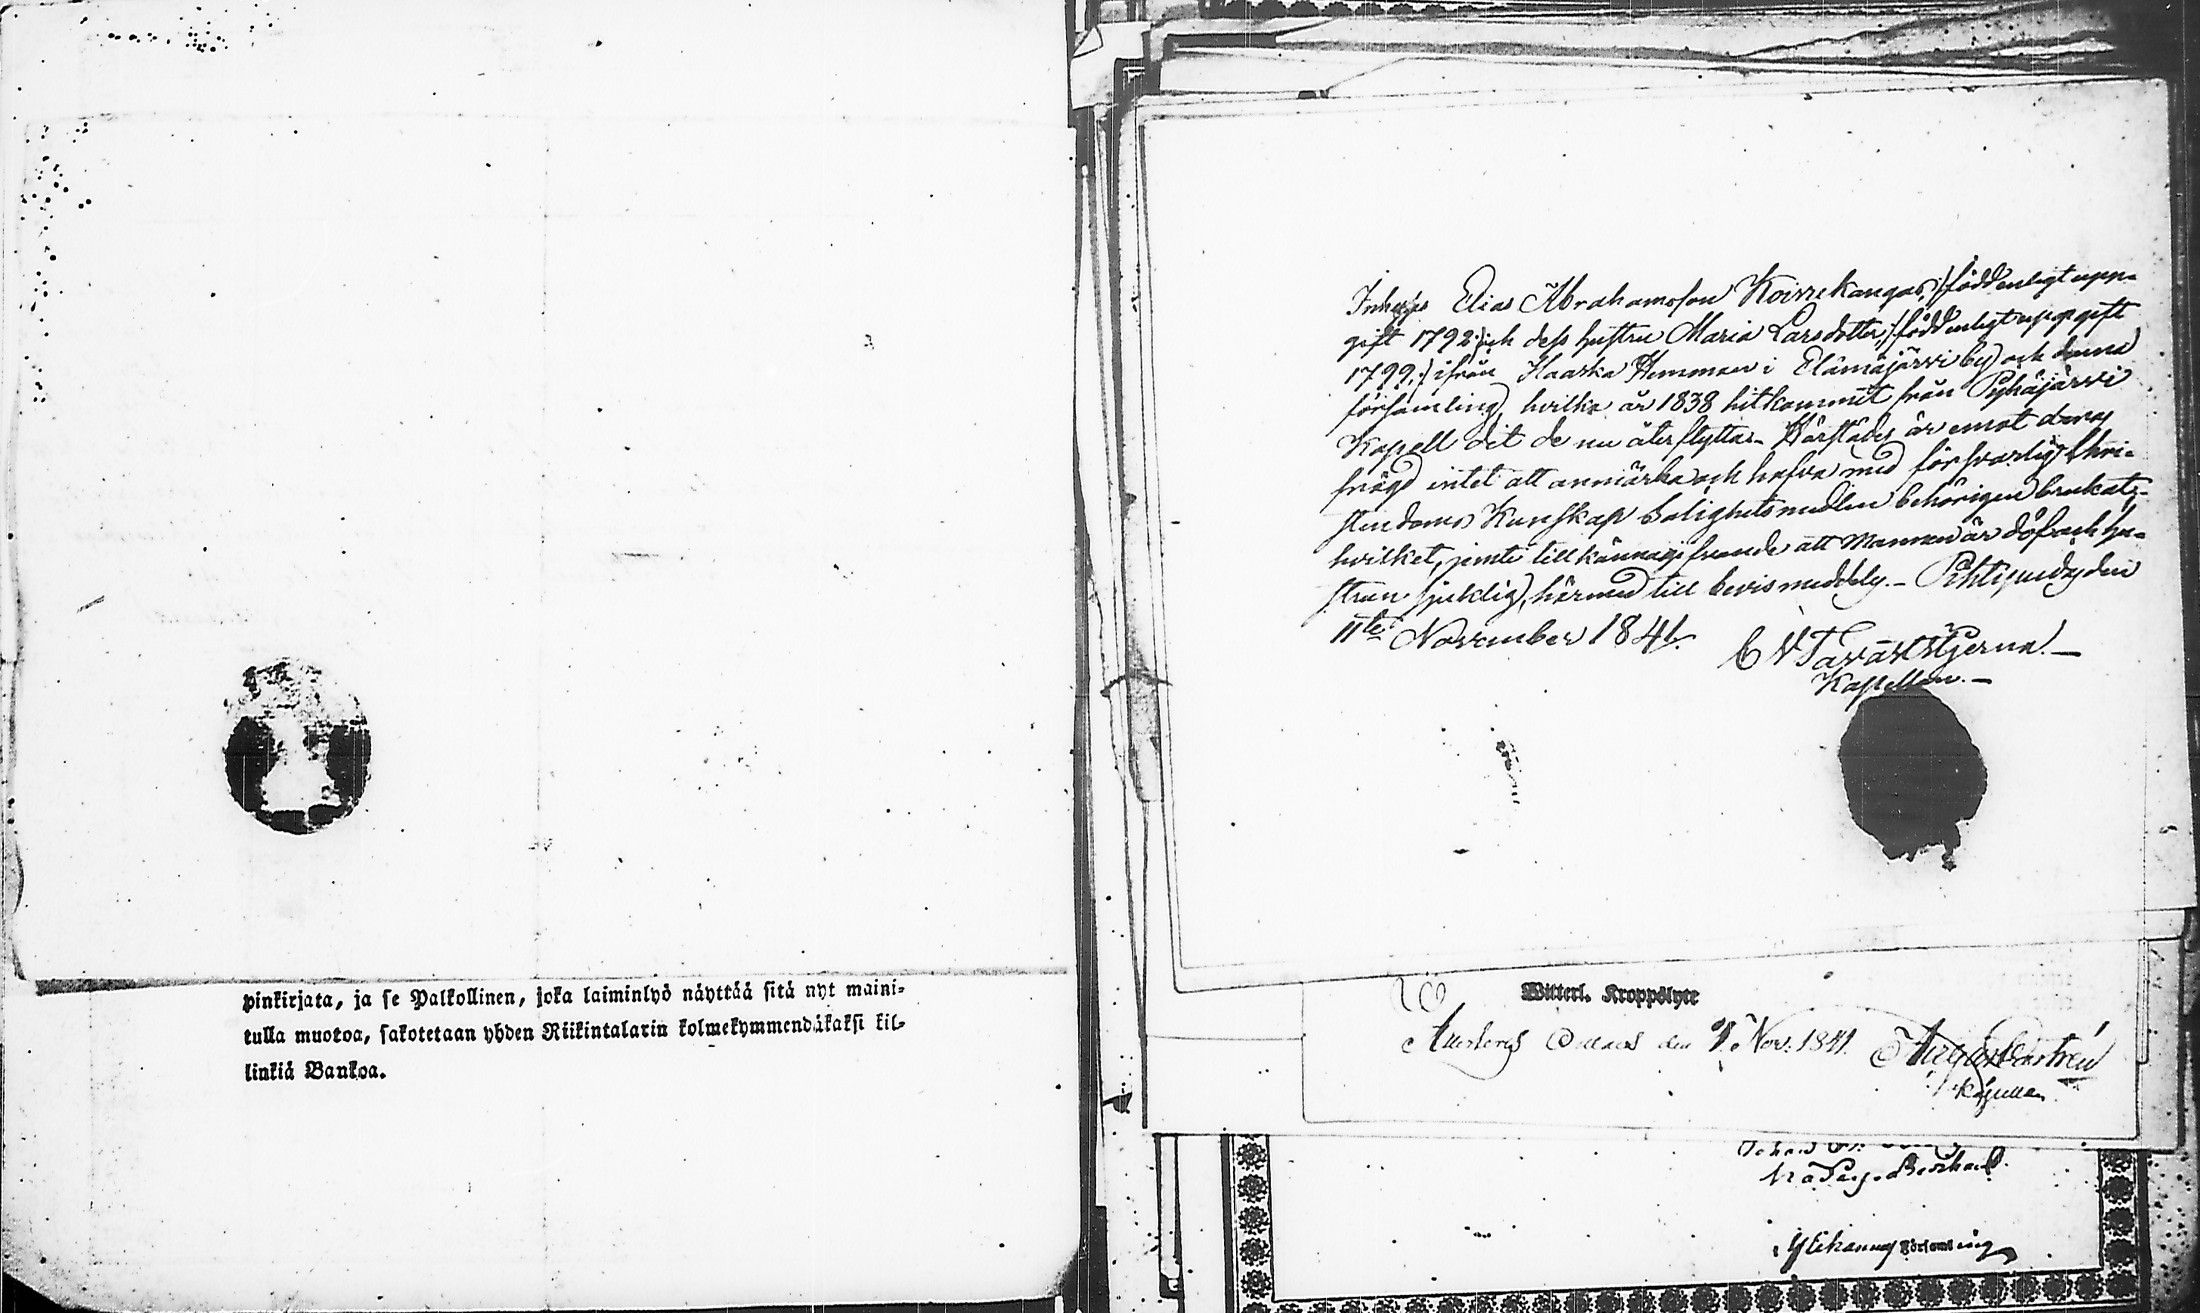 pinkirjata, ja se Palkollinen, joka laiminlyö näyttää sitä nyt maini-
tulla muotoa, sakotetaan yhden Riikintalarin kolmekymmendäkaksi kil-
linkiä Bankoa.
Inhyses Elias Abrahamsson Koirrekangas, /:född enligt upp-
gift 1792:/ och dess hustru Maria Larsdotter, /:född enligt uppgift
1799,:/ ifrån Haarka Hemman i Elämäjärvi by och denna
församling, hvilka år 1838 hitkommit från Pyhäjärvi
Kapell dit de nu återflytta. Härstädes är emot deras
frägd intet att anmärka och hafva med försvarlig Chri-
stendoms Kunskap Salighetsmedlen behörigen brukat;
hvilket, jemte tillkännagifvande att Mannen är döf och hu-
strun sjuklig, härmed till bevis meddelas. – Pihtipudas den
11te November 1841.
C W Tavaststjerna. –
Kapellan. –
Witterl. Kroppslyte
den Nov. 1841. August Castrén
Kapellan
Församl ing